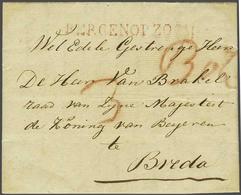 BERGENOPZOOM
Wel Edele Gestrenge Heer
De Heer Van Brakel
raad van Zyne Majesteit
de Koning van Beyeren
te
Breda